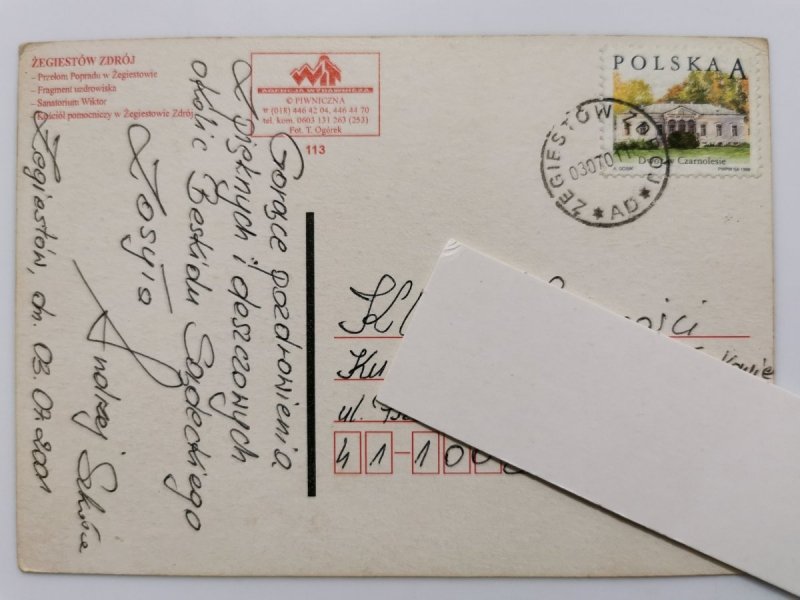 ŻEGIESTÓW ZDRÓJ
– Przełom Popradu w Żegiestowie
– Fragment uzdrowiska
– Sanatorium Wiktor
– Kościół pomocniczy w Żegiestowie Zdrój
WIT
AGENCJA WYDAWNICZA
© PIWNICZNA
☎ (018) 446 42 04, 446 44 70
tel. kom. 0603 131 263 (253)
Fot. T. Ogórek
113
POLSKA A
Dwór w Czarnolesie
PWPW SA 1998
ŻEGIESTÓW ZDRÓJ
030701
* AD *
Gorące pozdrowienia
z pięknych i deszczowych
okolic Beskidu Sądeckiego
Andrzej
Żegiestów, dn. 03.07.2001
ul.
41-100